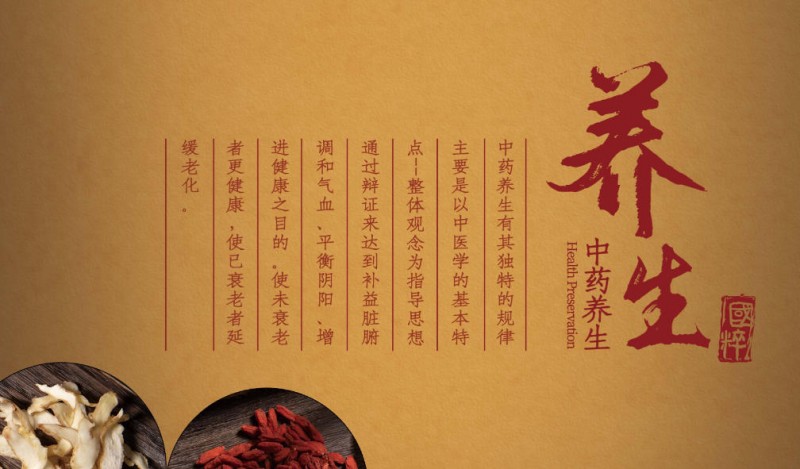 养生
國粹
中药养生
Health Preservation
中药养生有其独特的规律
主要是以中医学的基本特
点--整体观念为指导思想
通过辩证来达到补益脏腑
调和气血、平衡阴阳、增
进健康之目的。使未衰老
者更健康，使已衰老者延
缓老化。